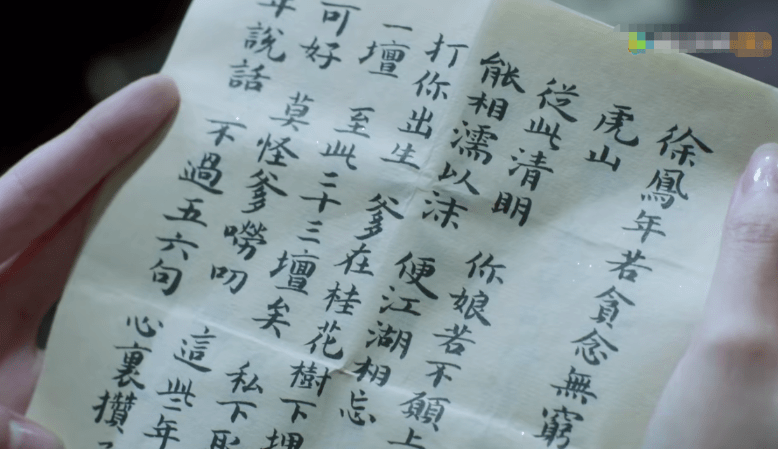 徐鳳年若貪念無窮
虎山
從此清明 你娘若不願上
能相濡以沫 便江湖相忘
打你出生 爹在桂花樹下埋
一壇 至此二十三壇矣 私下
可好 莫怪爹嘮叨 這些年
年說話 不過五六句 心裏攢